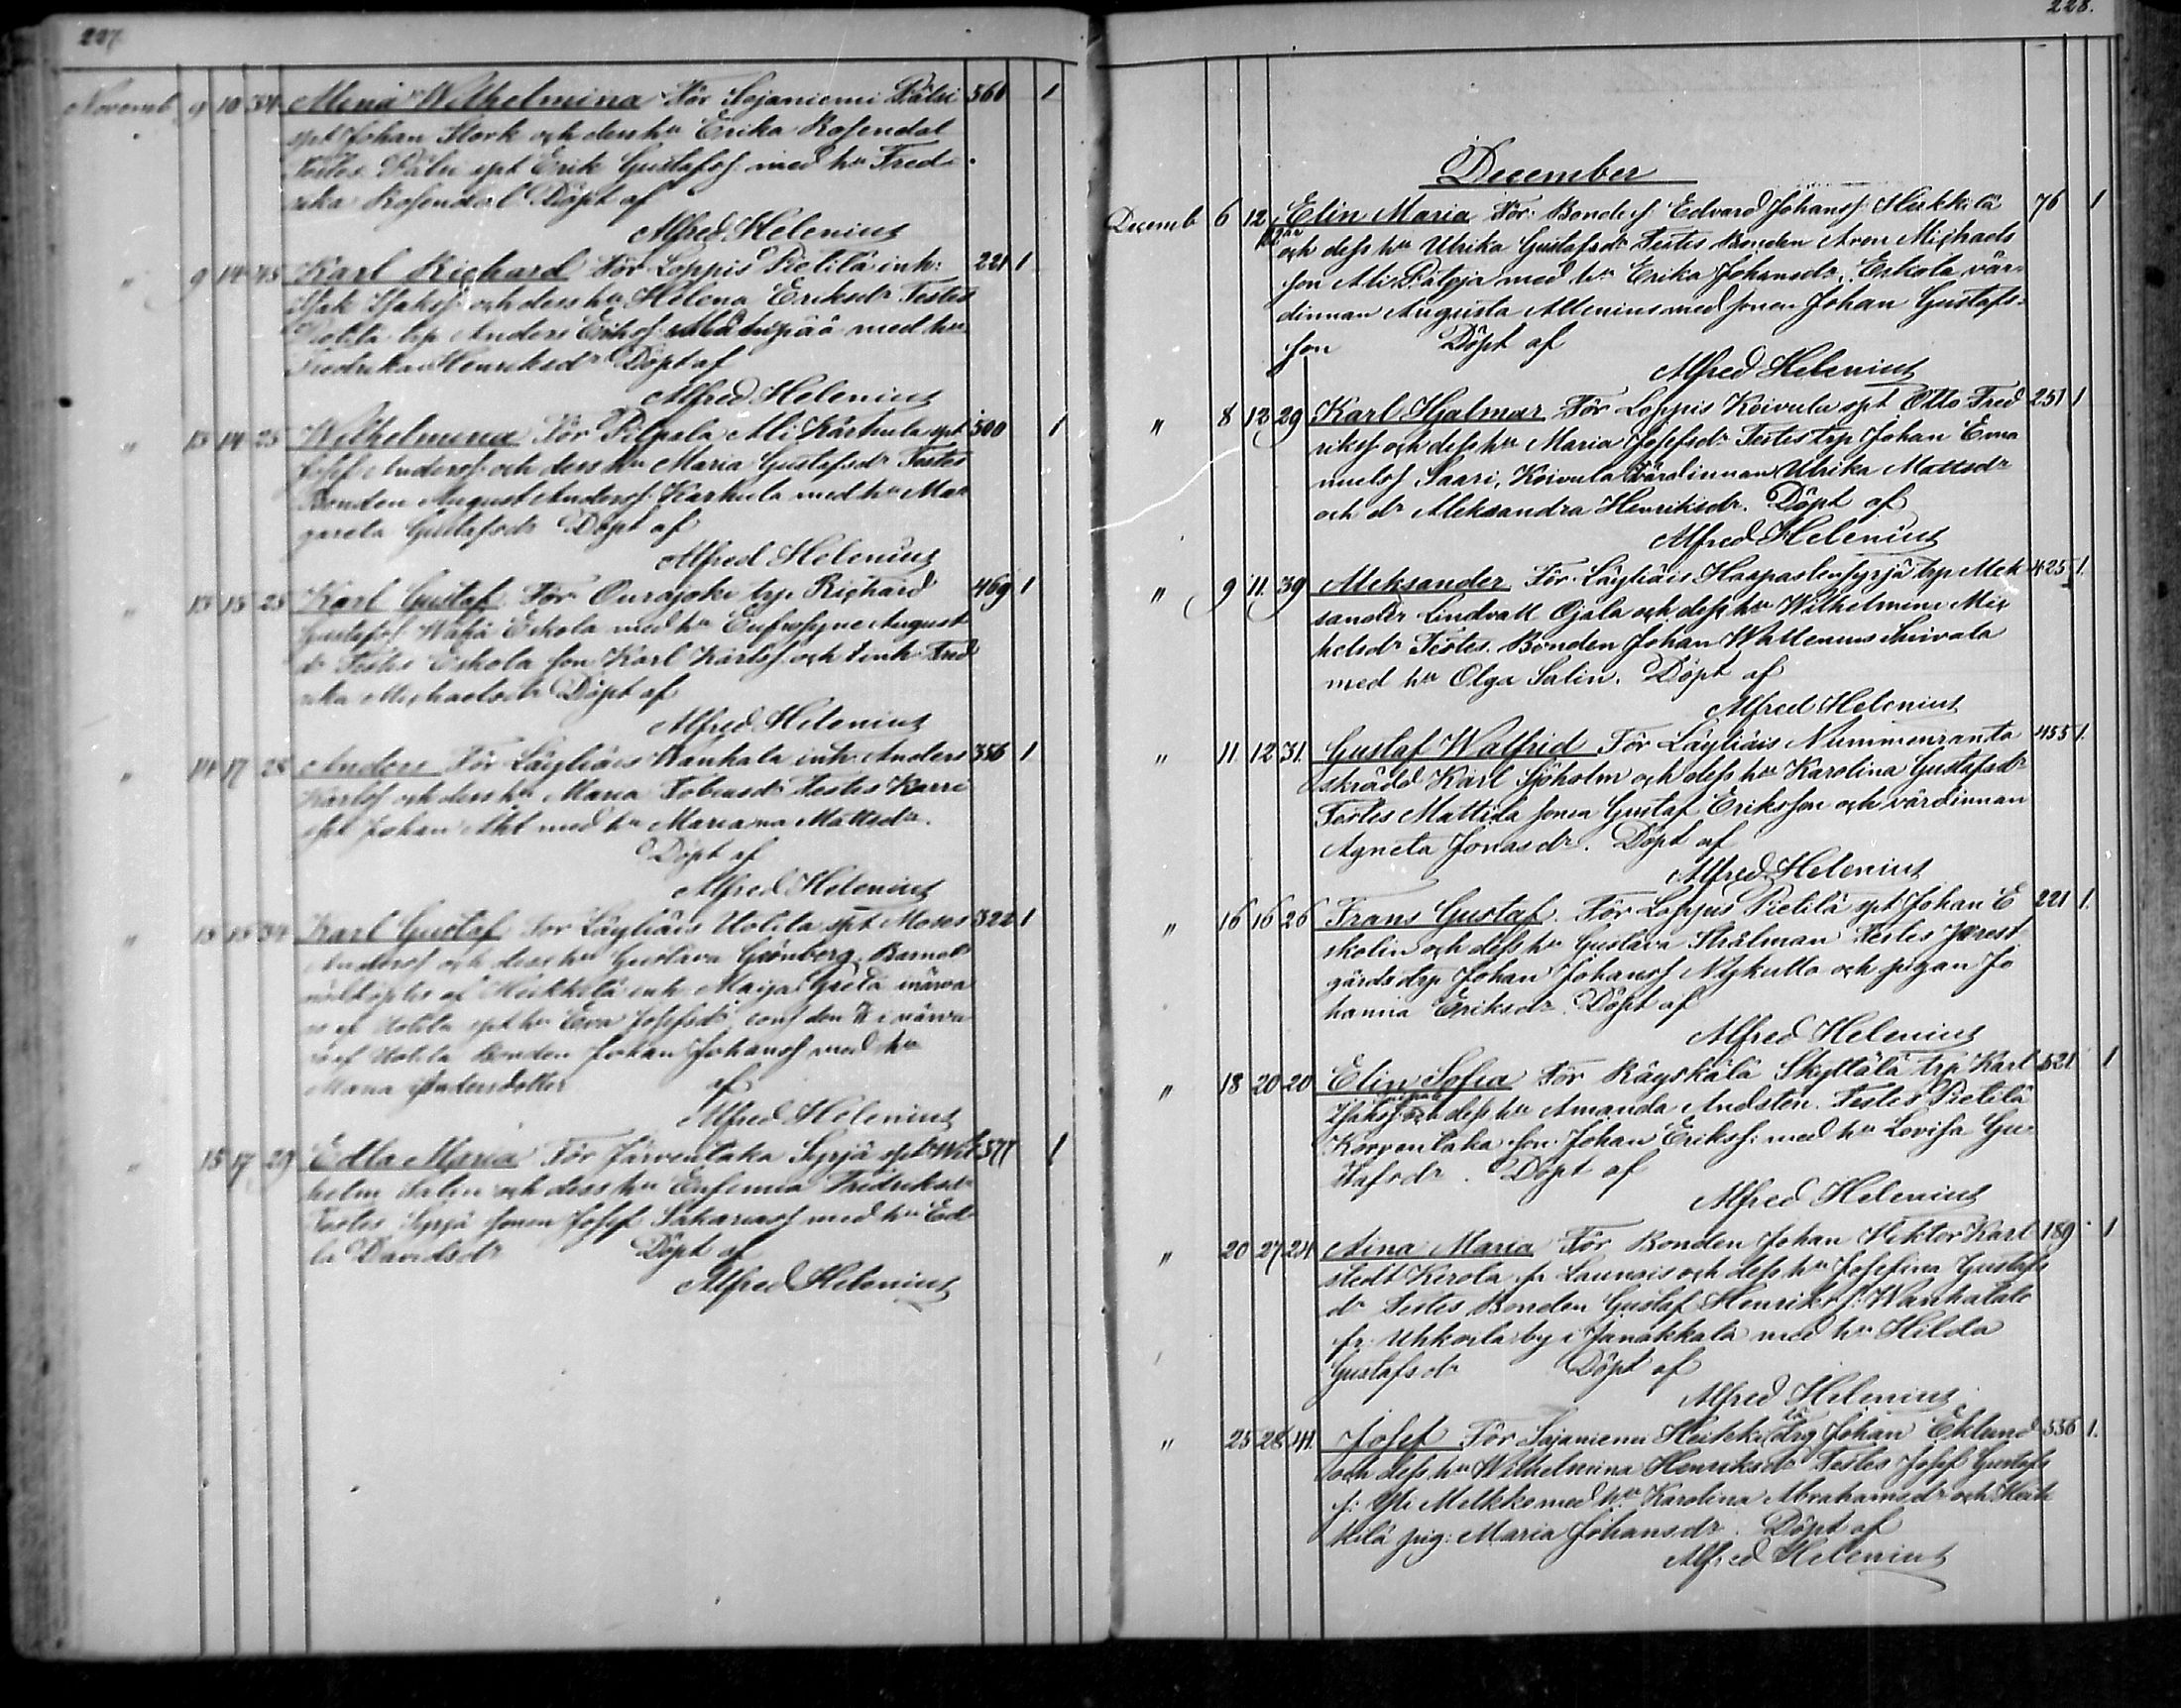 227.
Novemb. 9 10 34 Alma Wilhelmina För Sajaniemi Pälsi 561 1
spt Johan Stork och dess hu Erika Rosendal
Testes Pälsi spt Erik Gustafss. med hu Fred-
rika Rosendal Döpt af
Alfred Helenius
" 9 14 45 Karl Richard För Loppis Pietilä inh: 221 1
Isak Isakss och dess hu Helena Eriksdr Testes
Pietilä trp Anders Erikss med hu
Fredrika Henriksdr Döpt af
Alfred Helenius
" 13 14 25 Wilhelmina För Pilpala Ali Karhula spt 500 1
Josef Anderss. och dess hu Maria Gustafsdr Testes
Bonden August Anderss. Karhula med hu Mar
gareta Gustafsdr Döpt af
Alfred Helenius
" 13 15 25 Karl Gustaf För Ourajoki trp Richard 469 1
Gustafss Wähä Eskola med hu Eufrosyne August
dr Testes Eskola son Karl Karlss. och inh Fred
rika Michaelsdr Döpt af
Alfred Helenius
" 14 17 28 Anders För Läyliäis Wanhala inh: Anders 356 1
Karlss och dess hu Maria Tobiasdr Testes Karri
spt Johan Ahl med hu Mariana Mattsdr.
Döpt af
Alfred Helenius
" 15 15 34 Karl Gustaf För Läyliäis Uotila spt Moses 322 1
Anderss och dess hu Gustava Grönberg. Barnet
nöddöptes af Heikkilä inh Maija Greta i närva
ro af Uotila spt hu Eva Josefsdr, conf den i närva
ro af Uotila Bonden Johan Johanss med hu
Maria Andersdotter af
Alfred Helenius
" 15 17 29 Edla Maria För Järventaka Syrjä spt Wil 577 1
helm Salin och dess hu Eufemia Fredriksdr
Testes Syrjä sonen Josef Sakariass med hu Ed
la Davidsdr Döpt af
Alfred Helenius
228.
December
Decemb 6 12 Elin Maria För: Bondes: Edvard Johanss: Heikkilä 76 1
och dess hu Ulrika Gustafsdr Testes Bonden Aron Michaels
son Ali Pätyjä med hu Erika Johansdr, Eskola vär-
dinnan Augusta Allenius med sonen Johan Gustafs-
son Döpt af
Alfred Helenius
" 8 12 29 Karl Hjalmar För Loppis Koivula spt Otto Fred 251 1
rikss och dess hu Maria Josefsdr Testes trp Johan Ema
nuelss Saari, Koivula värdinnan Ulrika Mattsdr
och dr Aleksandra Henriksdr. Döpt af
Alfred Helenius
" 9 11. 39 Aleksander För Läyliäis Haapastensyrjä trp Alek 425 1.
sander Lindvall Ojala och dess hu Wilhelmina Mic
helsdr Testes Bonden Johan Wallenius Suivala
med hu Olga Salin. Döpt af
Alfred Helenius
" 11 12 31. Gustaf Walfrid För Läyliäis Nummenranta 455 1.
skrädd Karl Sjöholm och dess hu Karolina Gustafsdr
Testes Mattila sonen Gustaf Eriksson och värdinnan
Agneta Jonasdr. Döpt af
Alfred Helenius
" 16 16 26 Frans Gustaf. För Loppis Pietilä spt Johan E 221 1.
skolin och dess hu Gustava Strålman Testes Prest
gårds trp Johan Johanss Nykulla och pigan Jo
hanna Eriksdr. Döpt af
Alfred Helenius
" 18 20 20 Elin Sofia För Räyskälä Skyttälä trp Karl 521 1
Isakss och dess hu Amanda Andsten. Testes Pietilä
Korventaka son. Johan Erikss: med hu Lovisa Gu-
stafsdr. Döpt af
Alfred Helenius
" 20 27 24 Aina Maria För Bonden Johan Viktor Karl 189 1
stedt Kerola fr Launois och dess hu Josefina Gustafs
dr Testes Bonden Gustaf Henrikss: Wanhatalo
fr. Uhkoila by i Janakkala med hu Hilda
Gustafsdr Döpt af
Alfred Helenius
" 25 28 41. Josef För Sajaniemi Heikkilä trp Johan Eklund 556 1.
och dess hu Wilhelmina Henriksdr Testes Josef Gustafs
s: Yli Melkko med hu Karolina Abrahamsdr och Heik
kilä pig: Maria Johansdr. Döpt af
Alfred Helenius